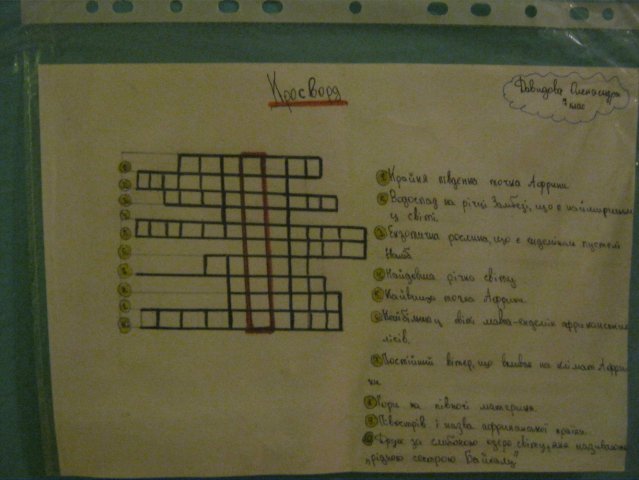 Кросворд
Давидова Олександра
7 клас
1 Крайня південна точка Африки.
2 Водоспад на річці Замбезі, що є найширшим
у світі.
3 Екзотична рослина, що є ендеміком пустелі
Наміб
4 Найдовша річка світу
5 Найвища точка Африки.
6 Найбільша у світі мавпа-ендемік африканських
лісів.
7 Постійний вітер, що впливає на клімат Африки
ки.
8 Гори на півночі материка.
9 Півострів і назва африканської країни.
10 Друге за глибиною озеро світу, яке називають
"рідною сестрою Байкалу"